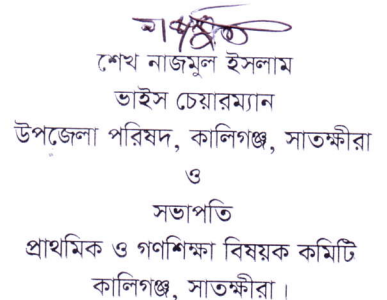 শেখ নাজমুল ইসলাম
ভাইস চেয়ারম্যান
উপজেলা পরিষদ, কালিগঞ্জ, সাতক্ষীরা
ও
সভাপতি
প্রাথমিক ও গণশিক্ষা বিষয়ক কমিটি
কালিগঞ্জ, সাতক্ষীরা।